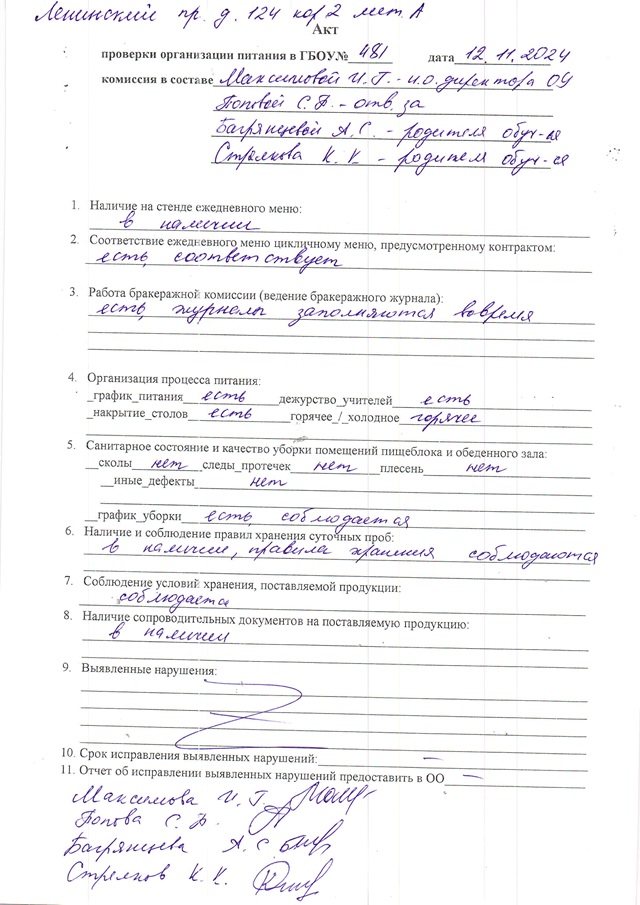 Ленинский пр. д. 124 кор 2 лит. А
Акт
проверки организации питания в ГБОУ№ 481 дата 12.11.2024
комиссия в составе Максимовой И.Г. - и.о. директора ОУ
Поповой С.Б. - отв. за
Багрянцевой А.С. - родителя обуч-ся
Стрелкова К.К. - родителя обуч-ся
1. Наличие на стенде ежедневного меню:
в наличии
2. Соответствие ежедневного меню цикличному меню, предусмотренному контрактом:
есть, соответствует
3. Работа бракеражной комиссии (ведение бракеражного журнала):
есть, журналы заполняются вовремя
4. Организация процесса питания:
_график_питания есть дежурство_учителей есть
_накрытие_столов есть горячее_/_холодное горячее
5. Санитарное состояние и качество уборки помещений пищеблока и обеденного зала:
__сколы нет следы_протечек нет плесень нет
__иные_дефекты нет
__график_уборки есть, соблюдается
6. Наличие и соблюдение правил хранения суточных проб:
в наличии, правила хранения соблюдаются
7. Соблюдение условий хранения, поставляемой продукции:
соблюдается
8. Наличие сопроводительных документов на поставляемую продукцию:
в наличии
9. Выявленные нарушения:
10. Срок исправления выявленных нарушений: –
11. Отчет об исправлении выявленных нарушений предоставить в ОО –
Максимова И.Г.
Попова С.Б.
Багрянцева А.С
Стрелков К.К.